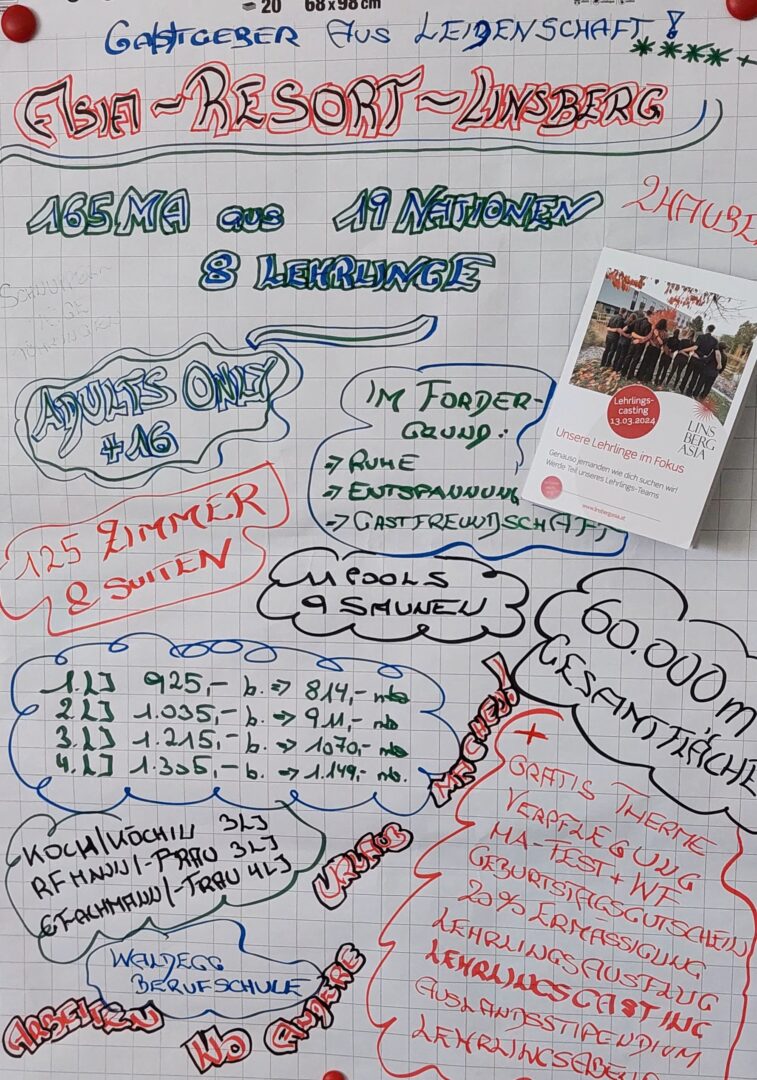 = 20 68 x 98 cm
GASTGEBER AUS LEIDENSCHAFT!
****+
ASIA-RESORT-LINSBERG
165 MA aus 19 NATIONEN
2 HAUBE
8 LEHRLINGE
ADULTS ONLY
#16
IM FORDER-
GRUND:
⇒ RUHE
⇒ ENTSPANNUNG
⇒ GASTFREUNDSCHAFT
Lehrlings-
casting
13.03.2024
LINS
BERG
ASIA
Unsere Lehrlinge im Fokus
Genauso jemanden wie dich suchen wir!
Werde Teil unseres Lehrlings-Teams
www.linsbergasia.at
125 ZIMMER
& SUITEN
11 POOLS
9 SAUNEN
60.000m
GESAMTFLÄCHE
1. LJ 925,- b. ⇒ 814,- nb
2. LJ 1.035,- b. ⇒ 911,- nb
3. LJ 1.215,- b. ⇒ 1070,- nb
4. LJ 1.335,- b. ⇒ 1.149,- nb.
KOCH/KÖCHIN 3LJ
RFMANN/-FRAU 3LJ
GFACHMANN/-FRAU 4LJ
WALDEGG
BERUFSCHULE
ARBEITEN
WO ANDERE
URLAUB
MACHEN!
+
GRATIS THERME
VERPFLEGUNG
MA-FEST + WF
GEBURTSTAGSGUTSCHEIN
20% ERMÄSSIGUNG
LEHRLINGSAUSFLUG
LEHRLINGSCASTING
AUSLANDSSTIPENDIUM
LEHRLINGSABEND